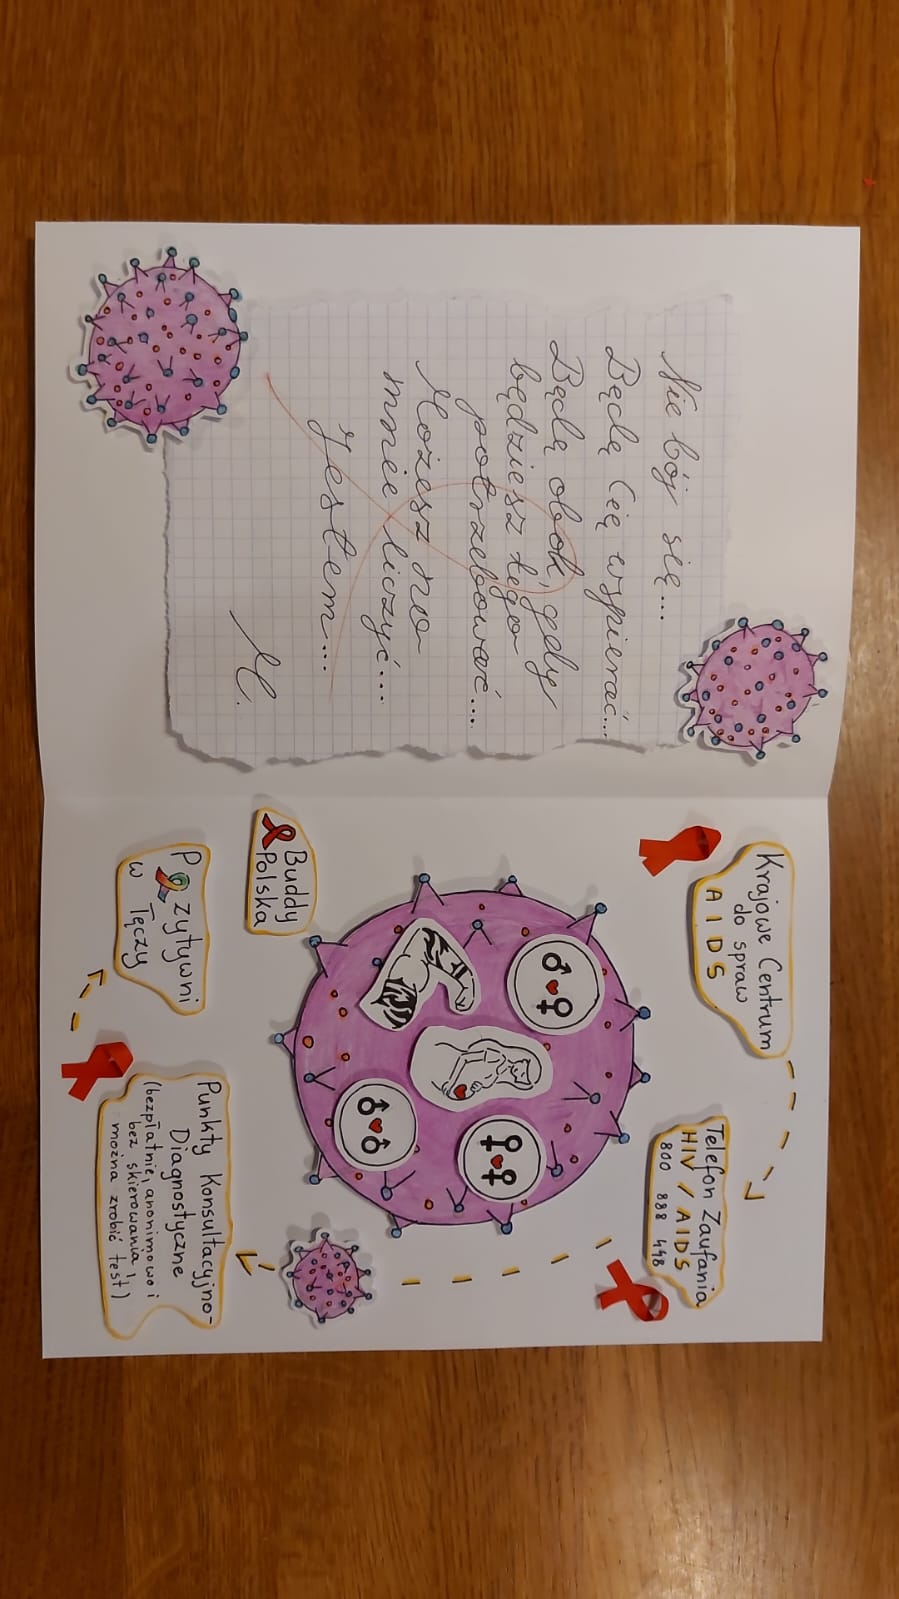 Nie bój się...
Będę Cię wspierać...
Będę obok, gdy
będziesz tego
potrzebować...
Możesz na
mnie liczyć...
Jestem...
M.
Krajowe Centrum
do spraw
AIDS
Telefon Zaufania
HIV / AIDS
800 888 448
Punkty Konsultacyjno-
Diagnostyczne
(bezpłatnie, anonimowo i
bez skierowania
można zrobić test)
Pozytywni
w Tęczy
Buddy
Polska